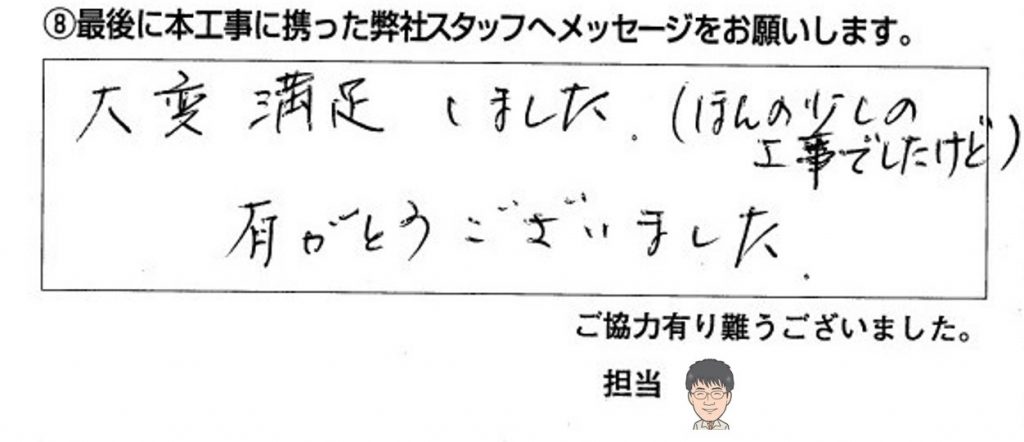 ⑧最後に本工事に携った弊社スタッフへメッセージをお願いします。
大変満足しました。(ほんの少しの
工事でしたけど)
有がとうございました。
ご協力有り難うございました。
担当